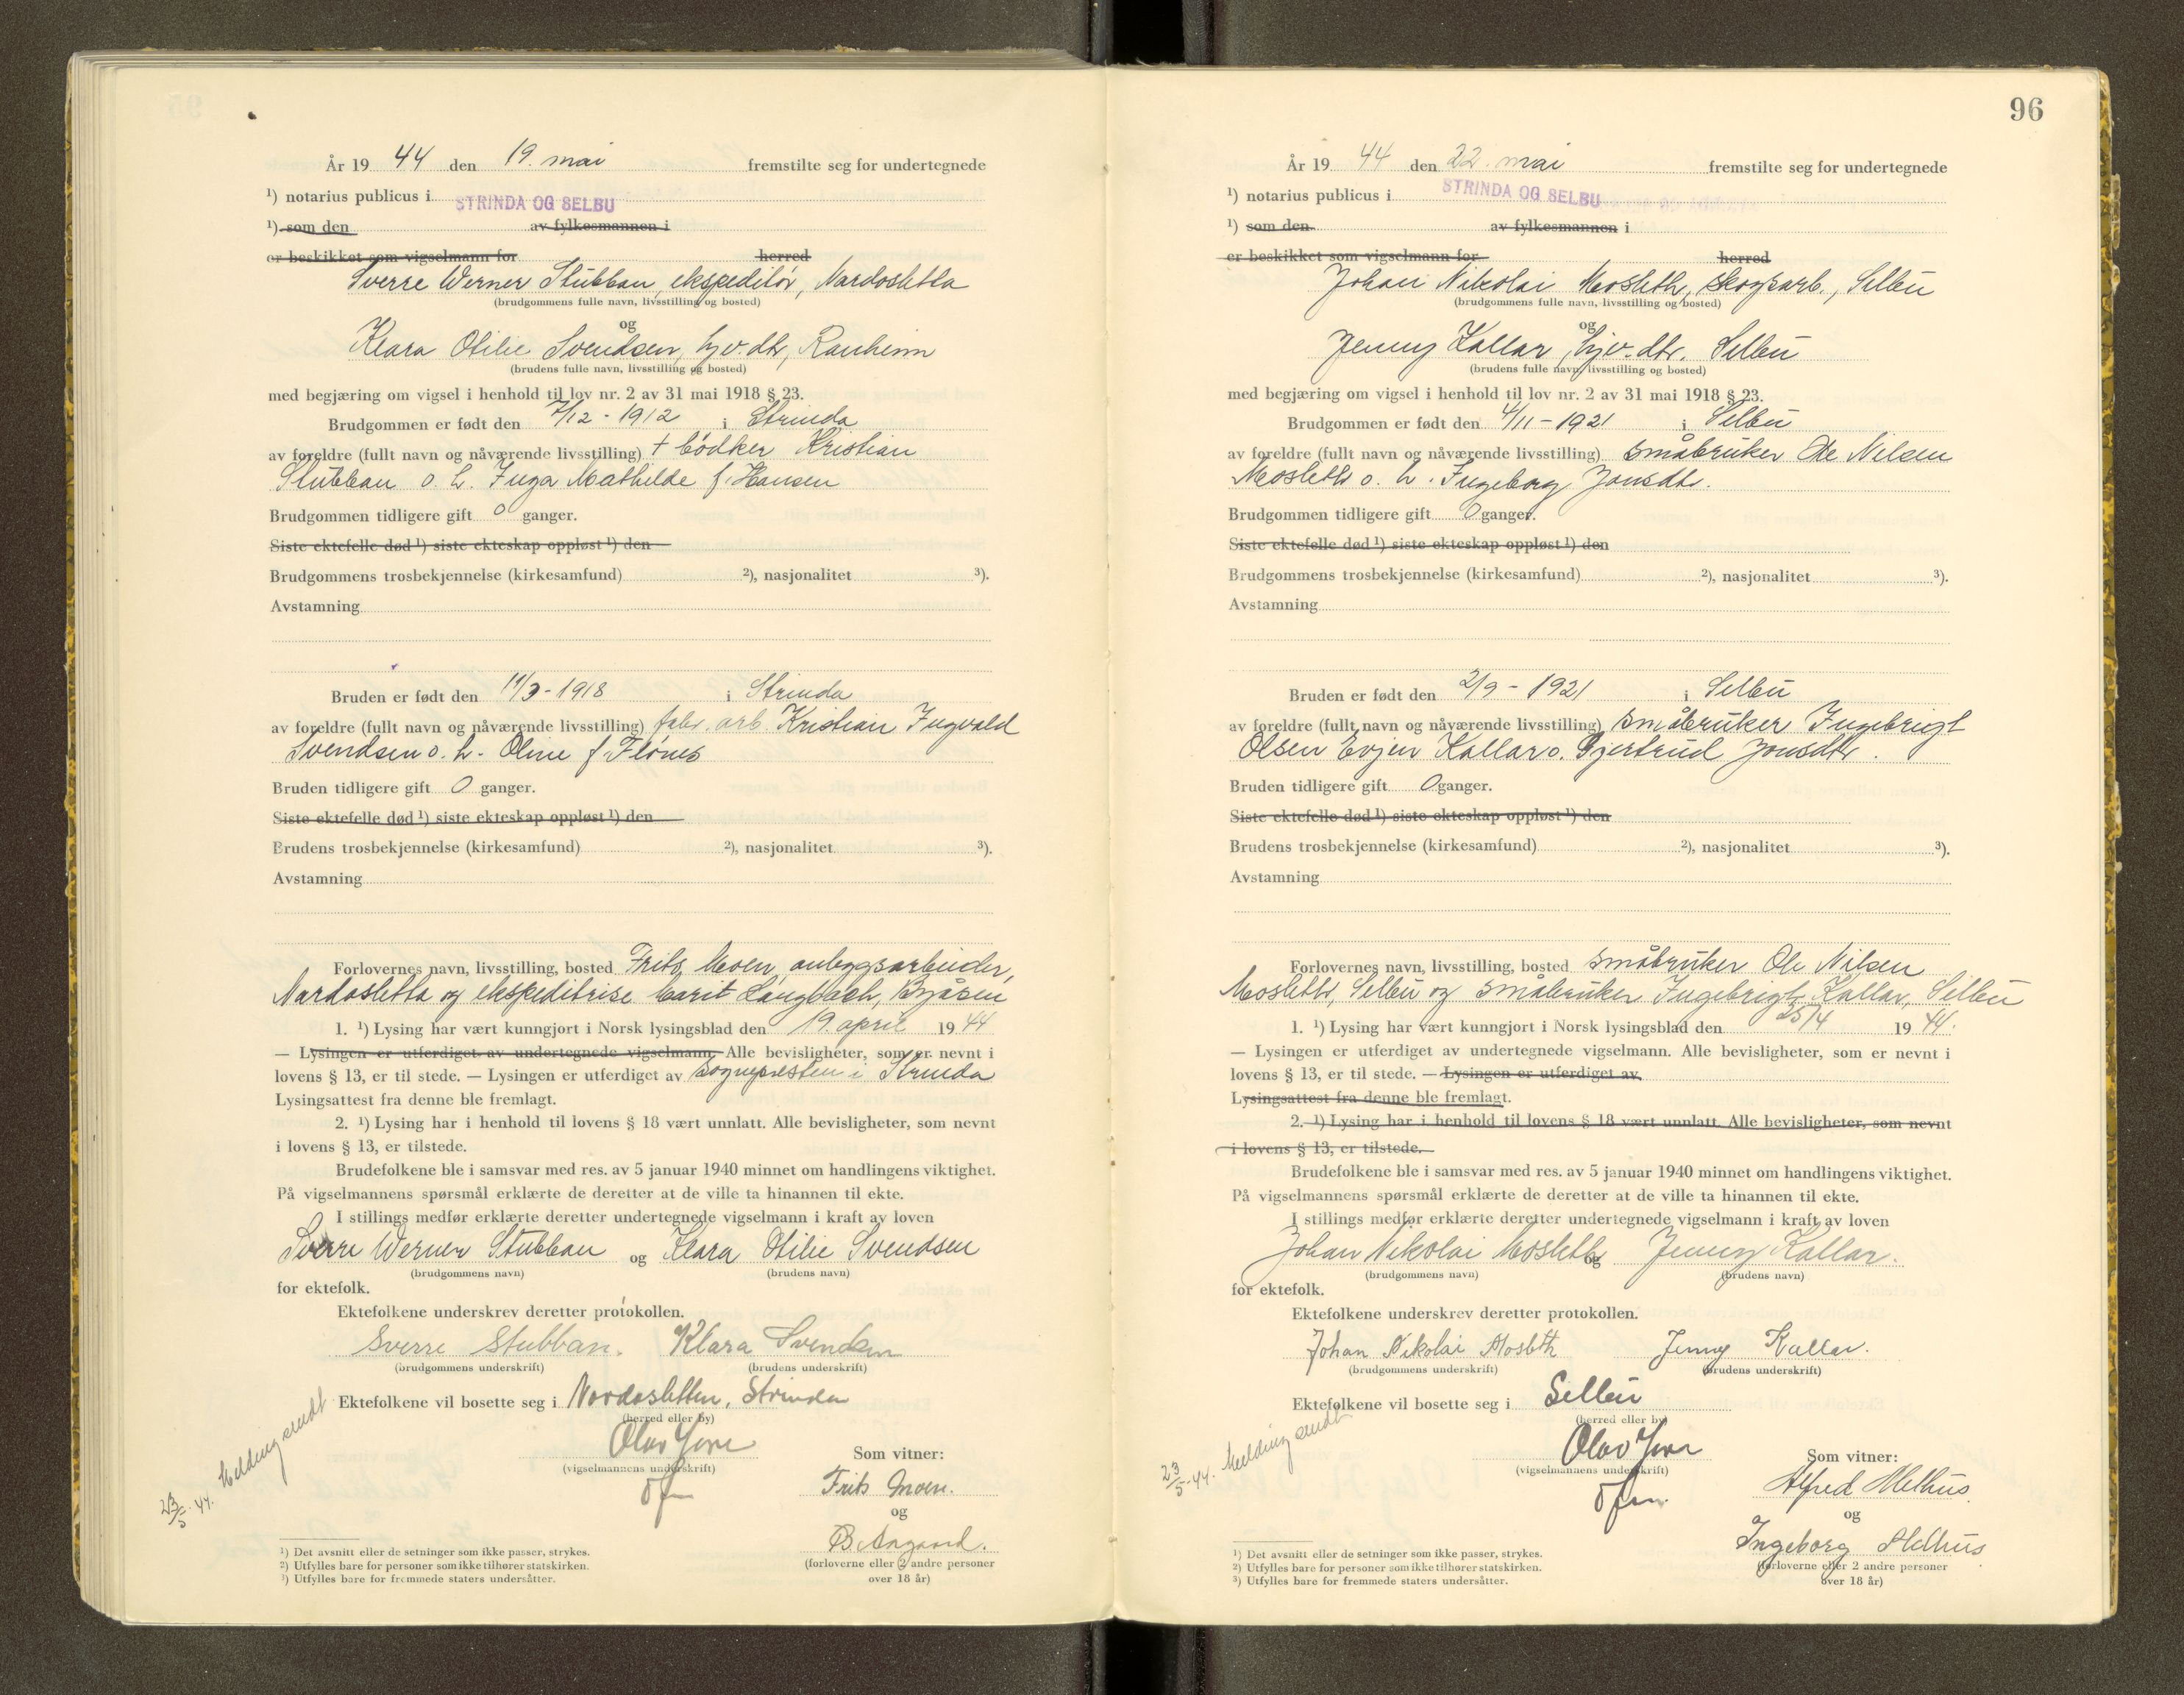 År 19 44 den 19. mai fremstilte seg for undertegnede
¹) notarius publicus i STRINDA OG SELBU
¹) som den av fylkesmannen i
er beskikket som vigselmann for herred
Sverre Werner Stubban, ekspeditör, Nardosletta
(brudgommens fulle navn, livsstilling og bosted)
og
Klara Otilie Svendsen, hjv. dtr, Ranheim
(brudens fulle navn, livsstilling og bosted)
med begjæring om vigsel i henhold til lov nr. 2 av 31 mai 1918 § 23.
Brudgommen er født den 7/12 - 1912 i Strinda
av foreldre (fullt navn og nåværende livsstilling) † bödker Kristian
Stubban o. h. Inga Mathilde f. Hansen
Brudgommen tidligere gift 0 ganger.
Siste ektefelle død ¹) siste ekteskap oppløst ¹) den
Brudgommens trosbekjennelse (kirkesamfund) ²), nasjonalitet ³).
Avstamning
Bruden er født den 11/3 - 1918 i Strinda
av foreldre (fullt navn og nåværende livsstilling) fabr. arb. Kristian Ingvald
Svendsen o. h. Oline f. Flönes
Bruden tidligere gift 0 ganger.
Siste ektefelle død ¹) siste ekteskap oppløst ¹) den
Brudens trosbekjennelse (kirkesamfund) ²), nasjonalitet ³).
Avstamning
Forlovernes navn, livsstilling, bosted Frits Moen, anleggsarbeider,
Nardosletta og ekspeditrise Marit Langbach, Byåsen
1. ¹) Lysing har vært kunngjort i Norsk lysingsblad den 19. april 19 44
— Lysingen er utferdiget av undertegnede vigselmann. Alle bevisligheter, som er nevnt i
lovens § 13, er til stede. — Lysingen er utferdiget av sognepresten i Strinda
Lysingsattest fra denne ble fremlagt.
2. ¹) Lysing har i henhold til lovens § 18 vært unnlatt. Alle bevisligheter, som nevnt
i lovens § 13, er tilstede.
Brudefolkene ble i samsvar med res. av 5 januar 1940 minnet om handlingens viktighet.
På vigselmannens spørsmål erklærte de deretter at de ville ta hinannen til ekte.
I stillings medfør erklærte deretter undertegnede vigselmann i kraft av loven
Sverre Werner Stubban og Klara Otilie Svendsen
(brudgommens navn) (brudens navn)
for ektefolk.
Ektefolkene underskrev deretter protokollen.
Sverre Stubban. Klara Svendsen
(brudgommens underskrift) (brudens underskrift)
Ektefolkene vil bosette seg i Nardosletten, Strinda
(herred eller by)
Olav
(vigselmannens underskrift)
Som vitner:
Frits Moen.
og
B. Aagaard.
(forloverne eller 2 andre personer
over 18 år)
23/5-44. Melding sendt
¹) Det avsnitt eller de setninger som ikke passer, strykes.
²) Utfylles bare for personer som ikke tilhører statskirken.
³) Utfylles bare for fremmede staters undersåtter.
96
År 19 44 den 22. mai fremstilte seg for undertegnede
¹) notarius publicus i STRINDA OG SELBU
¹) som den av fylkesmannen i
er beskikket som vigselmann for herred
Johan Nikolai Mosleth, skogsarb., Selbu
(brudgommens fulle navn, livsstilling og bosted)
og
Jenny Kallar, hjv. dtr. Selbu
(brudens fulle navn, livsstilling og bosted)
med begjæring om vigsel i henhold til lov nr. 2 av 31 mai 1918 § 23.
Brudgommen er født den 4/11 - 1921 i Selbu
av foreldre (fullt navn og nåværende livsstilling) småbruker Ole Nilsen
Mosleth o. h. Ingeborg Jonsdtr.
Brudgommen tidligere gift 0 ganger.
Siste ektefelle død ¹) siste ekteskap oppløst ¹) den
Brudgommens trosbekjennelse (kirkesamfund) ²), nasjonalitet ³).
Avstamning
Bruden er født den 2/9 - 1921 i Selbu
av foreldre (fullt navn og nåværende livsstilling) småbruker Ingebrigt
Olsen Evjen Kallar o. Gjertrud Jonsdtr.
Bruden tidligere gift 0 ganger.
Siste ektefelle død ¹) siste ekteskap oppløst ¹) den
Brudens trosbekjennelse (kirkesamfund) ²), nasjonalitet ³).
Avstamning
Forlovernes navn, livsstilling, bosted småbruker Ole Nilsen
Mosleth, Selbu og småbruker Ingebrigt Kallar, Selbu
1. ¹) Lysing har vært kunngjort i Norsk lysingsblad den 25/4 19 44.
— Lysingen er utferdiget av undertegnede vigselmann. Alle bevisligheter, som er nevnt i
lovens § 13, er til stede. — Lysingen er utferdiget av
Lysingsattest fra denne ble fremlagt.
2. ¹) Lysing har i henhold til lovens § 18 vært unnlatt. Alle bevisligheter, som nevnt
i lovens § 13, er tilstede.
Brudefolkene ble i samsvar med res. av 5 januar 1940 minnet om handlingens viktighet.
På vigselmannens spørsmål erklærte de deretter at de ville ta hinannen til ekte.
I stillings medfør erklærte deretter undertegnede vigselmann i kraft av loven
Johan Nikolai Mosleth og Jenny Kallar.
(brudgommens navn) (brudens navn)
for ektefolk.
Ektefolkene underskrev deretter protokollen.
Johan Nikolai Mosleth Jenny Kallar.
(brudgommens underskrift) (brudens underskrift)
Ektefolkene vil bosette seg i Selbu
(herred eller by)
Olav
(vigselmannens underskrift)
Som vitner:
Alfred Melhus
og
Ingeborg Melhus
(forloverne eller 2 andre personer
over 18 år)
23/5-44. Melding sendt
¹) Det avsnitt eller de setninger som ikke passer, strykes.
²) Utfylles bare for personer som ikke tilhører statskirken.
³) Utfylles bare for fremmede staters undersåtter.